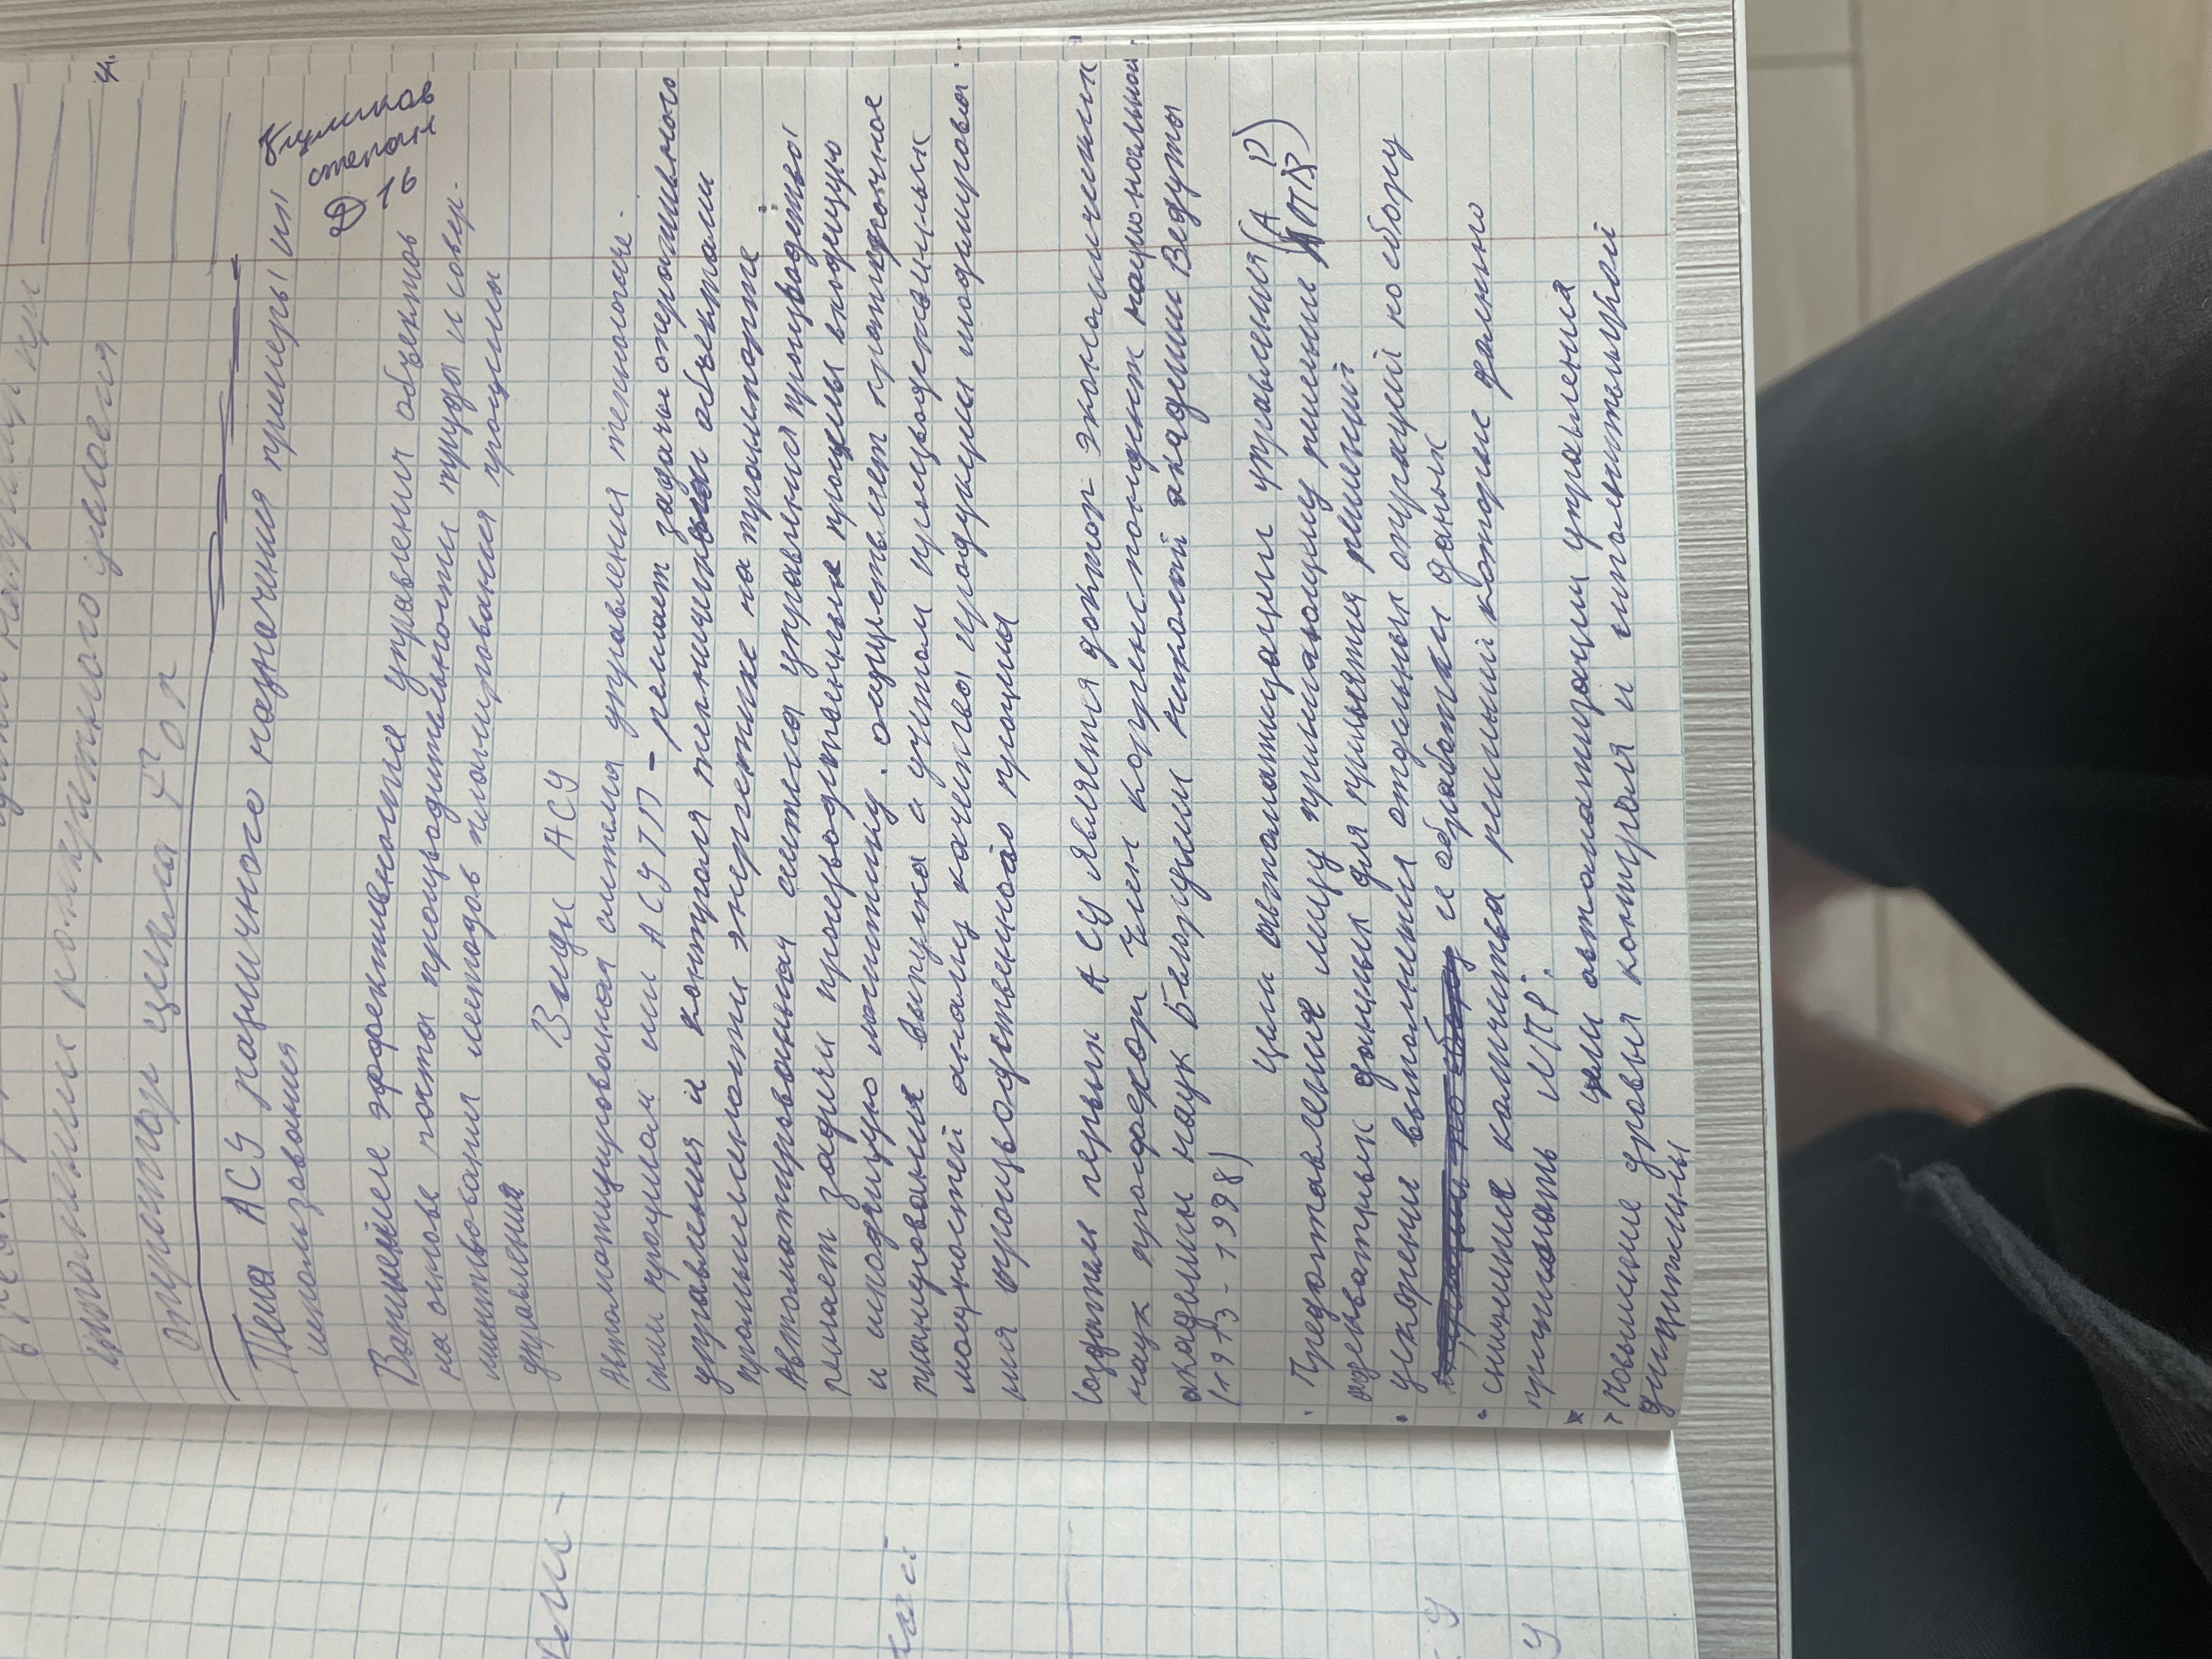 исполнении конкретного
оператор цикла for
Тема АСУ различного назначения примеры их
использования
Куликов
степан
16
Важнейшее эффективности управления объектов
на основе роста производительности труда и совер-
шенствования методов планирования процессы
управления
Виды АСУ
Автоматизированная система управления технологиче-
ским процессом или АСУТП - решает задачи оперативного
управления и контроля техническими объектами
промышленности энергетике на транспорте
Автоматизированная система управления производства
решает задачи производственные процессы входную
и исходящую логистику. осуществляет краткосрочное
планирование выпуска с учётом производственных
мощностей анализ качества продукции моделирова-
ния производственного процесса
Создатель первых АСУ является доктор экономических
наук профессор член корреспондент национальной
академии наук Белорусии научной академии Ведуты
(1913-1998)
Цели автоматизации управления
Предоставления лицу принимающему решение
адекватных данных для принятия решений
ускорение выполнения отдельных операций по сбору
и обработки даных
снижение количества решений которые должно
принимать ЛПР.
цели автоматизации управления
Повышение уровня контроля и исполнительской
дисциплины